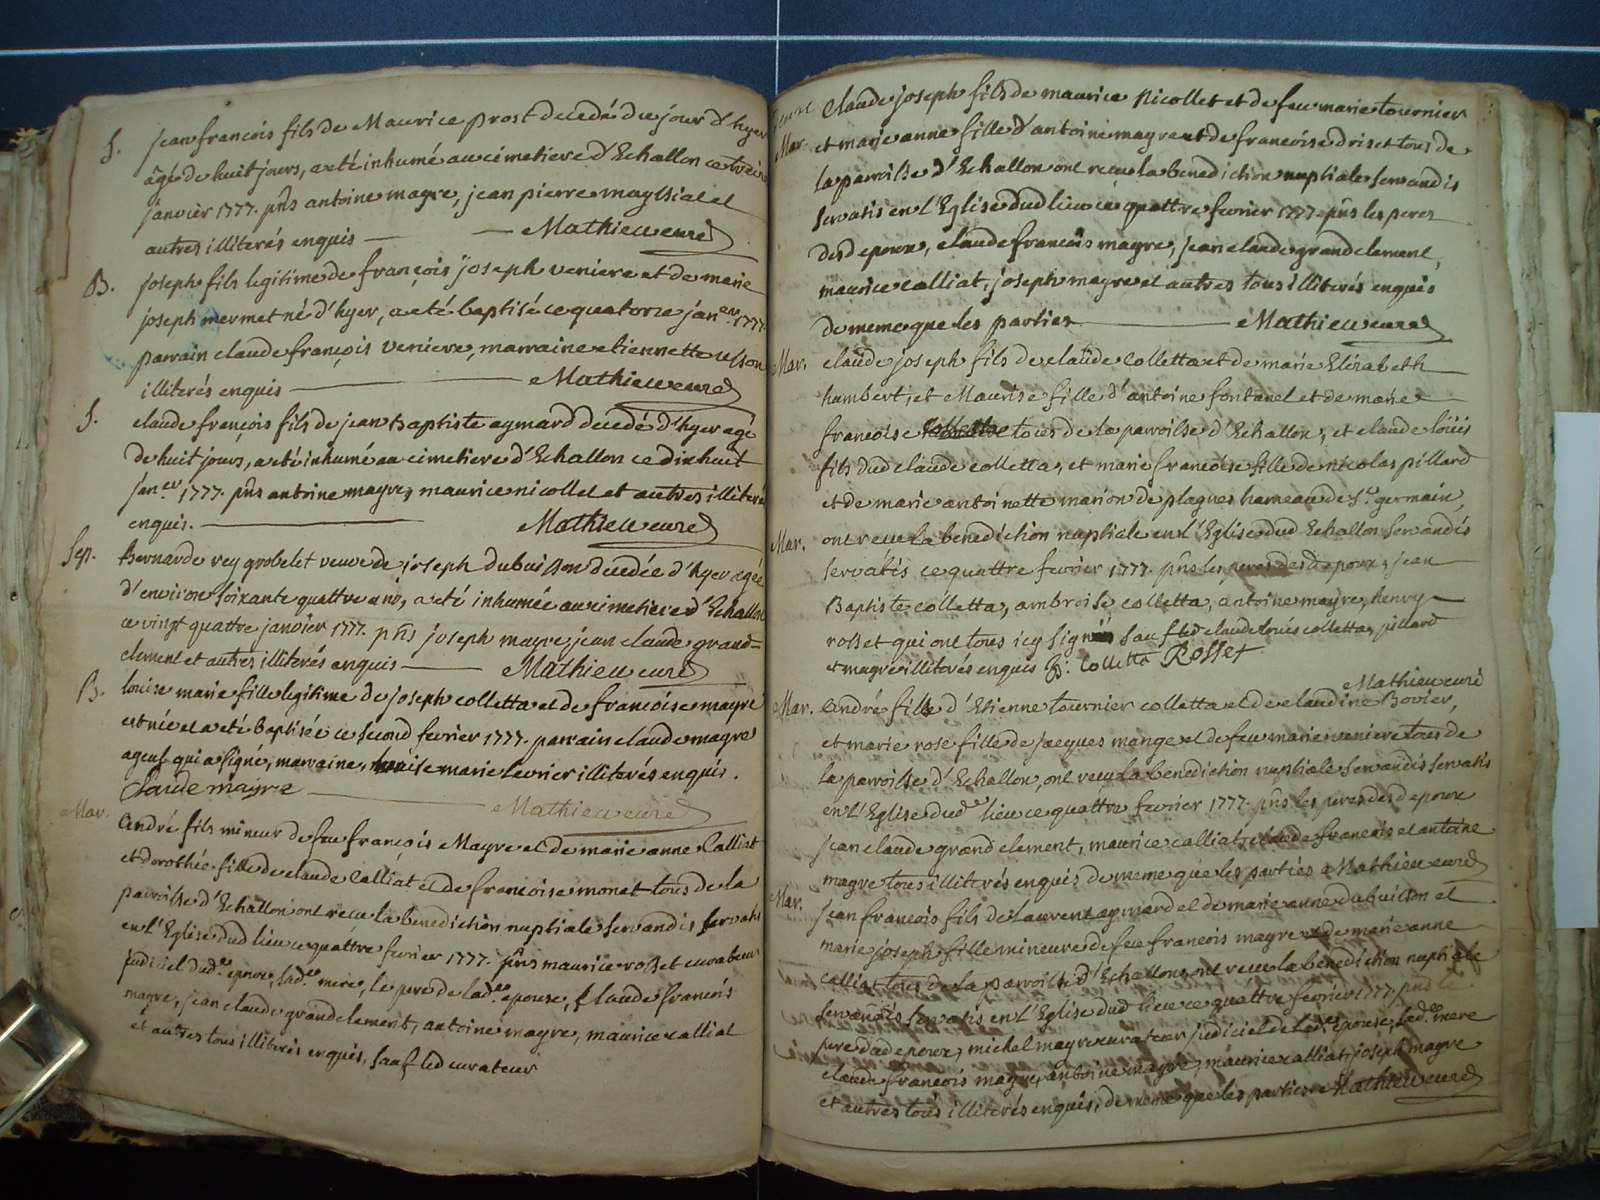 S. Jean francois fils de Maurice prost decedé du jour d'hyer
âgé de huit jours, a eté inhumé au cimetiere d'Echallon ce treize
janvier 1777. pñs antoine magre, jean pierre mayssiat et
autres illiterés enquis — Mathieu curé
B. joseph fils legitime de françois joseph veniere et de marie
joseph mermet né d'hyer, a eté baptisé ce quatorze jan.er 1777.
parrain claude françois veniere, marraine etiennette usson
illiterés enquis — Mathieu curé
S. claude françois fils de jean Baptiste aymard decedé d'hyer agé
de huit jours, a eté inhumé au cimetiere d'Echallon ce dixhuit
jan.er 1777. pñs antoine magre, maurice nicollet et autres illiterés
enquis. — Mathieu curé
Sep. Bernarde rey grobelet veuve de joseph dubuisson décedée d'hyer agée
d'environ soixante quattre ans, a eté inhumée au cimetiere d'Echallon
ce vingt quattre janvier 1777. pñs joseph magre, jean claude grand=
clement et autres illiterés enquis — Mathieu curé
B. louise marie fille legitime de joseph colletta et de francoise magre
est née et a eté Baptisée ce second fevrier 1777. parrain claude magre
ayeul qui a signé, marraine, louise marie levrier illiterés enquis.
Claude maigre — Mathieu curé
Mar. André fils mineur de feu francois Magre et de marie anne Calliat
et dorothée fille de claude Calliat et de francoise monet tous de la
parroisse d'Echallon ont recu la benediction nuptiale servandis servatis
en l'Eglise dud lieu ce quattre fevrier 1777. pñs maurice rosset curateur
judiciel dud. epoux, lad.e mere, le pere de lad.e epouse, claude francois
magre, jean claude grandclement, antoine magre, maurice calliat
et autres tous illiterés enquis, sauf led curateur
Claude joseph fils de maurice Nicollet et de feu marie tournier
Mar. et marie anne fille d'antoine magre et de francoise droiset tous de
la parroisse d'Echallon ont recu la benediction nuptiale servandis
servatis en l'Eglise dud lieu ce quattre fevrier 1777. pñs les peres
desd epoux, claude francois magre, jean claude grandclement,
maurice calliat, joseph magre et autres tous illiterés enquis
de meme que les parties — Mathieu curé
Mar. claude joseph fils de claude Colletta et de marie Elizabeth
humbert, et Maurise fille d'antoine fontanel et de marie
francoise tous de la parroisse d'Echallon, et claude louis
fils dud claude colletta, et marie francoise fille de nicolas pillard
et de marie antoinette marion de plagnes hameau de S.t germain,
Mar. ont recu la benediction nuptiale en l'Eglise dud Echallon servandis
servatis ce quattre fevrier 1777. pñs les peres desd epoux, jean
Baptiste colletta, ambroise colletta, antoine magre, henry
rosset qui ont tous icy signé sauf led claude louis colletta, pillard
et magre illiterés enquis B: Colletta Rosset
Mathieu curé
Mar. André fils d'Etienne tournier colletta et de claudine Bovier,
et marie rose fille de jacques mange et de feu marie veniere tous de
la parroisse d'Echallon, ont recu la benediction nuptiale servandis servatis
en l'Eglise dud.t lieu ce quattre fevrier 1777. pñs les peres desd epoux
jean claude grand clement, maurice calliat, claude francois et antoine
magre tous illiterés enquis de meme que les parties Mathieu curé
Mar. jean francois fils de Laurent aymard et de marie anne dubuisson et
marie joseph fille mineure de feu francois magre et de marie anne
calliat tous de la parroisse d'Echallon ont recu la benediction nuptiale
servandis servatis en l'Eglise dud lieu ce quattre fevrier 1777. pñs le
pere dud epoux, michel magre curateur judiciel de lad.e epouse, lad.e mere
claude francois magre, antoine magre, maurice calliat, joseph magre
et autres tous illiterés enquis, de meme que les parties Mathieu curé